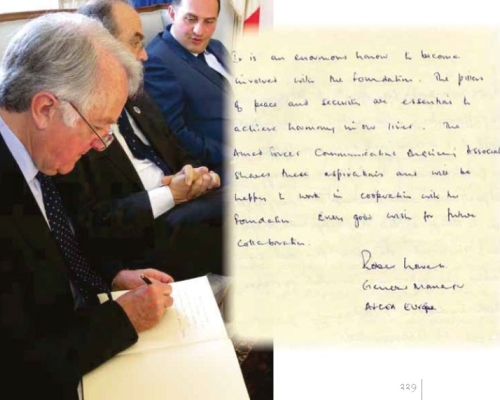 It is an enormous honour to become
involved with the Foundation. The pillars
of peace and security are essential to
achieve harmony in our lives. The
Armed Forces Communications Engineering Associat
shares these aspirations and will be
happy to work in cooperation with the
Foundation. Every good wish for future
collaboration.
Robert
General Manager
AFCEA Europe
229